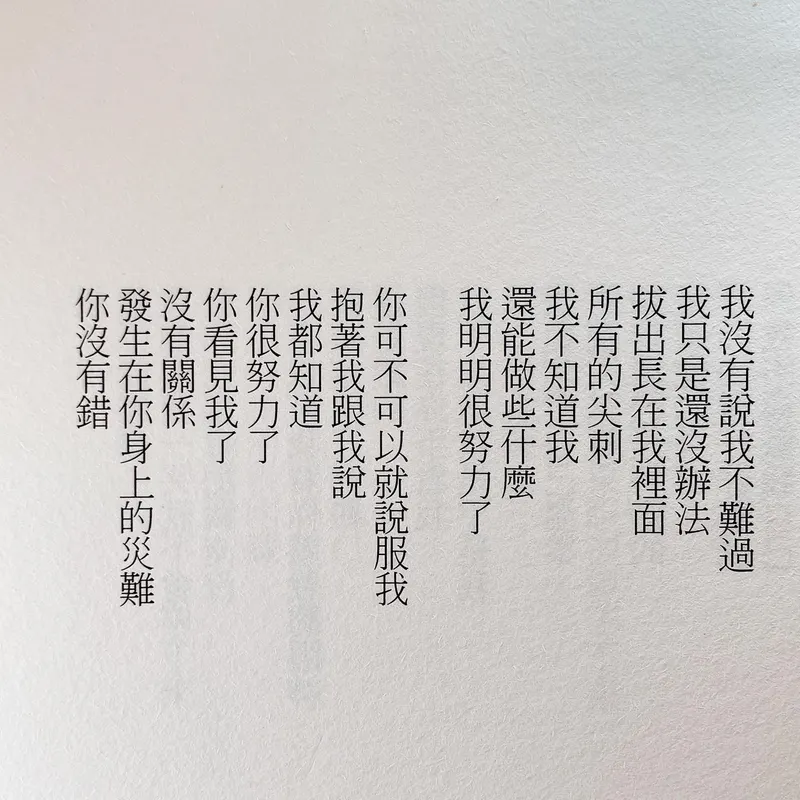 我沒有說我不難過
我只是還沒辦法
拔出長在我裡面
所有的尖刺
我不知道我
還能做些什麼
我明明很努力了
你可不可以就說服我
抱著我跟我說
我都知道
你很努力了
你看見我了
沒有關係
發生在你身上的災難
你沒有錯